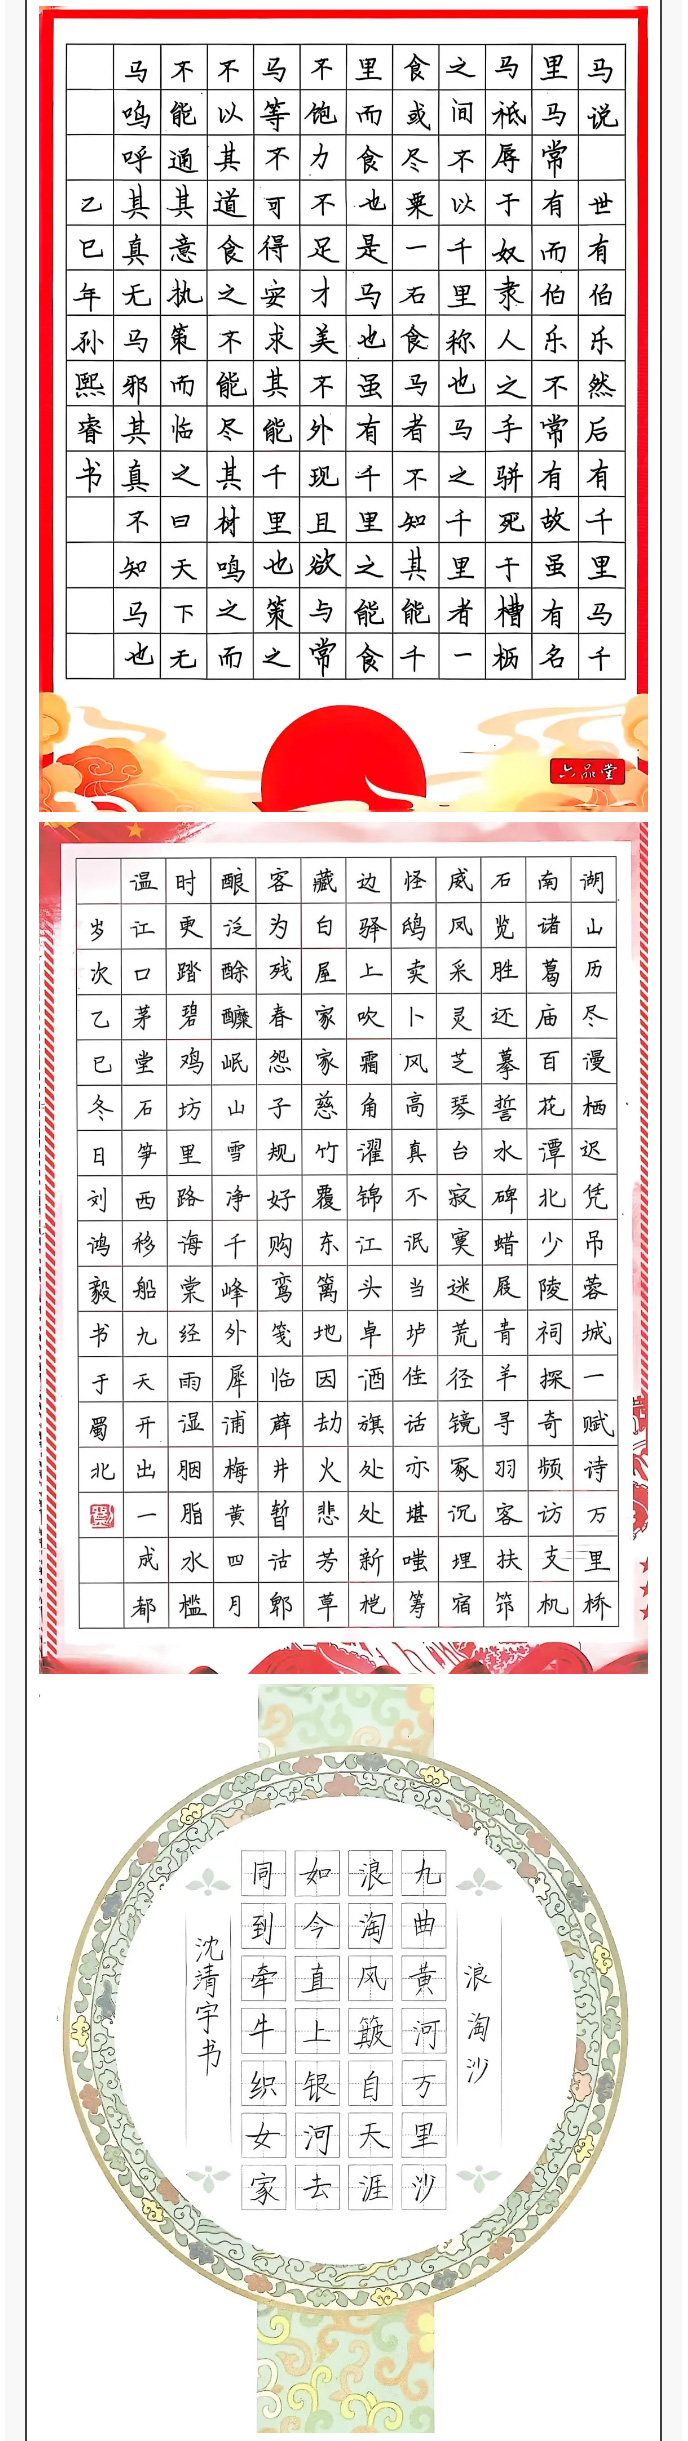 马说 世有伯乐然后有千里马千
里马常有而伯乐不常有故虽有名
马祗辱于奴隶人之手骈死于槽枥
之间不以千里称也马之千里者一
食或尽粟一石食马者不知其能千
里而食也是马也虽有千里之能食
不饱力不足才美不外现且欲与常
马等不可得安求其能千里也策之
不以其道食之不能尽其材鸣之而
不能通其意执策而临之曰天下无
马呜呼其真无马邪其真不知马也
乙巳年孙熙睿书
六品堂
湖山历尽漫栖迟凭吊蓉城一赋诗万里桥
南诸葛庙百花潭北少陵祠探奇频访支机
石览胜还摹誓水碑蜡屐青羊寻羽客扶筇
威凤采灵芝琴台寂寞迷荒径镜冢沉埋宿
怪鸱卖卜风高真不泯当垆佳话亦堪嗤筹
边驿上吹霜角濯锦江头卓酒旗处处新桤
藏白屋家家慈竹覆东篱地因劫火悲芳草
客为残春怨子规好购鸾笺临薜井暂沽郫
酿泛酴醿岷山雪净千峰外犀浦梅黄四月
时更踏碧鸡坊里路海棠经雨湿胭脂水槛
温江口茅堂石笋西移船九天开出一成都
岁次乙巳冬日刘鸿毅书于蜀北
浪淘沙
九曲黄河万里沙
浪淘风簸自天涯
如今直上银河去
同到牵牛织女家
沈靖宇书